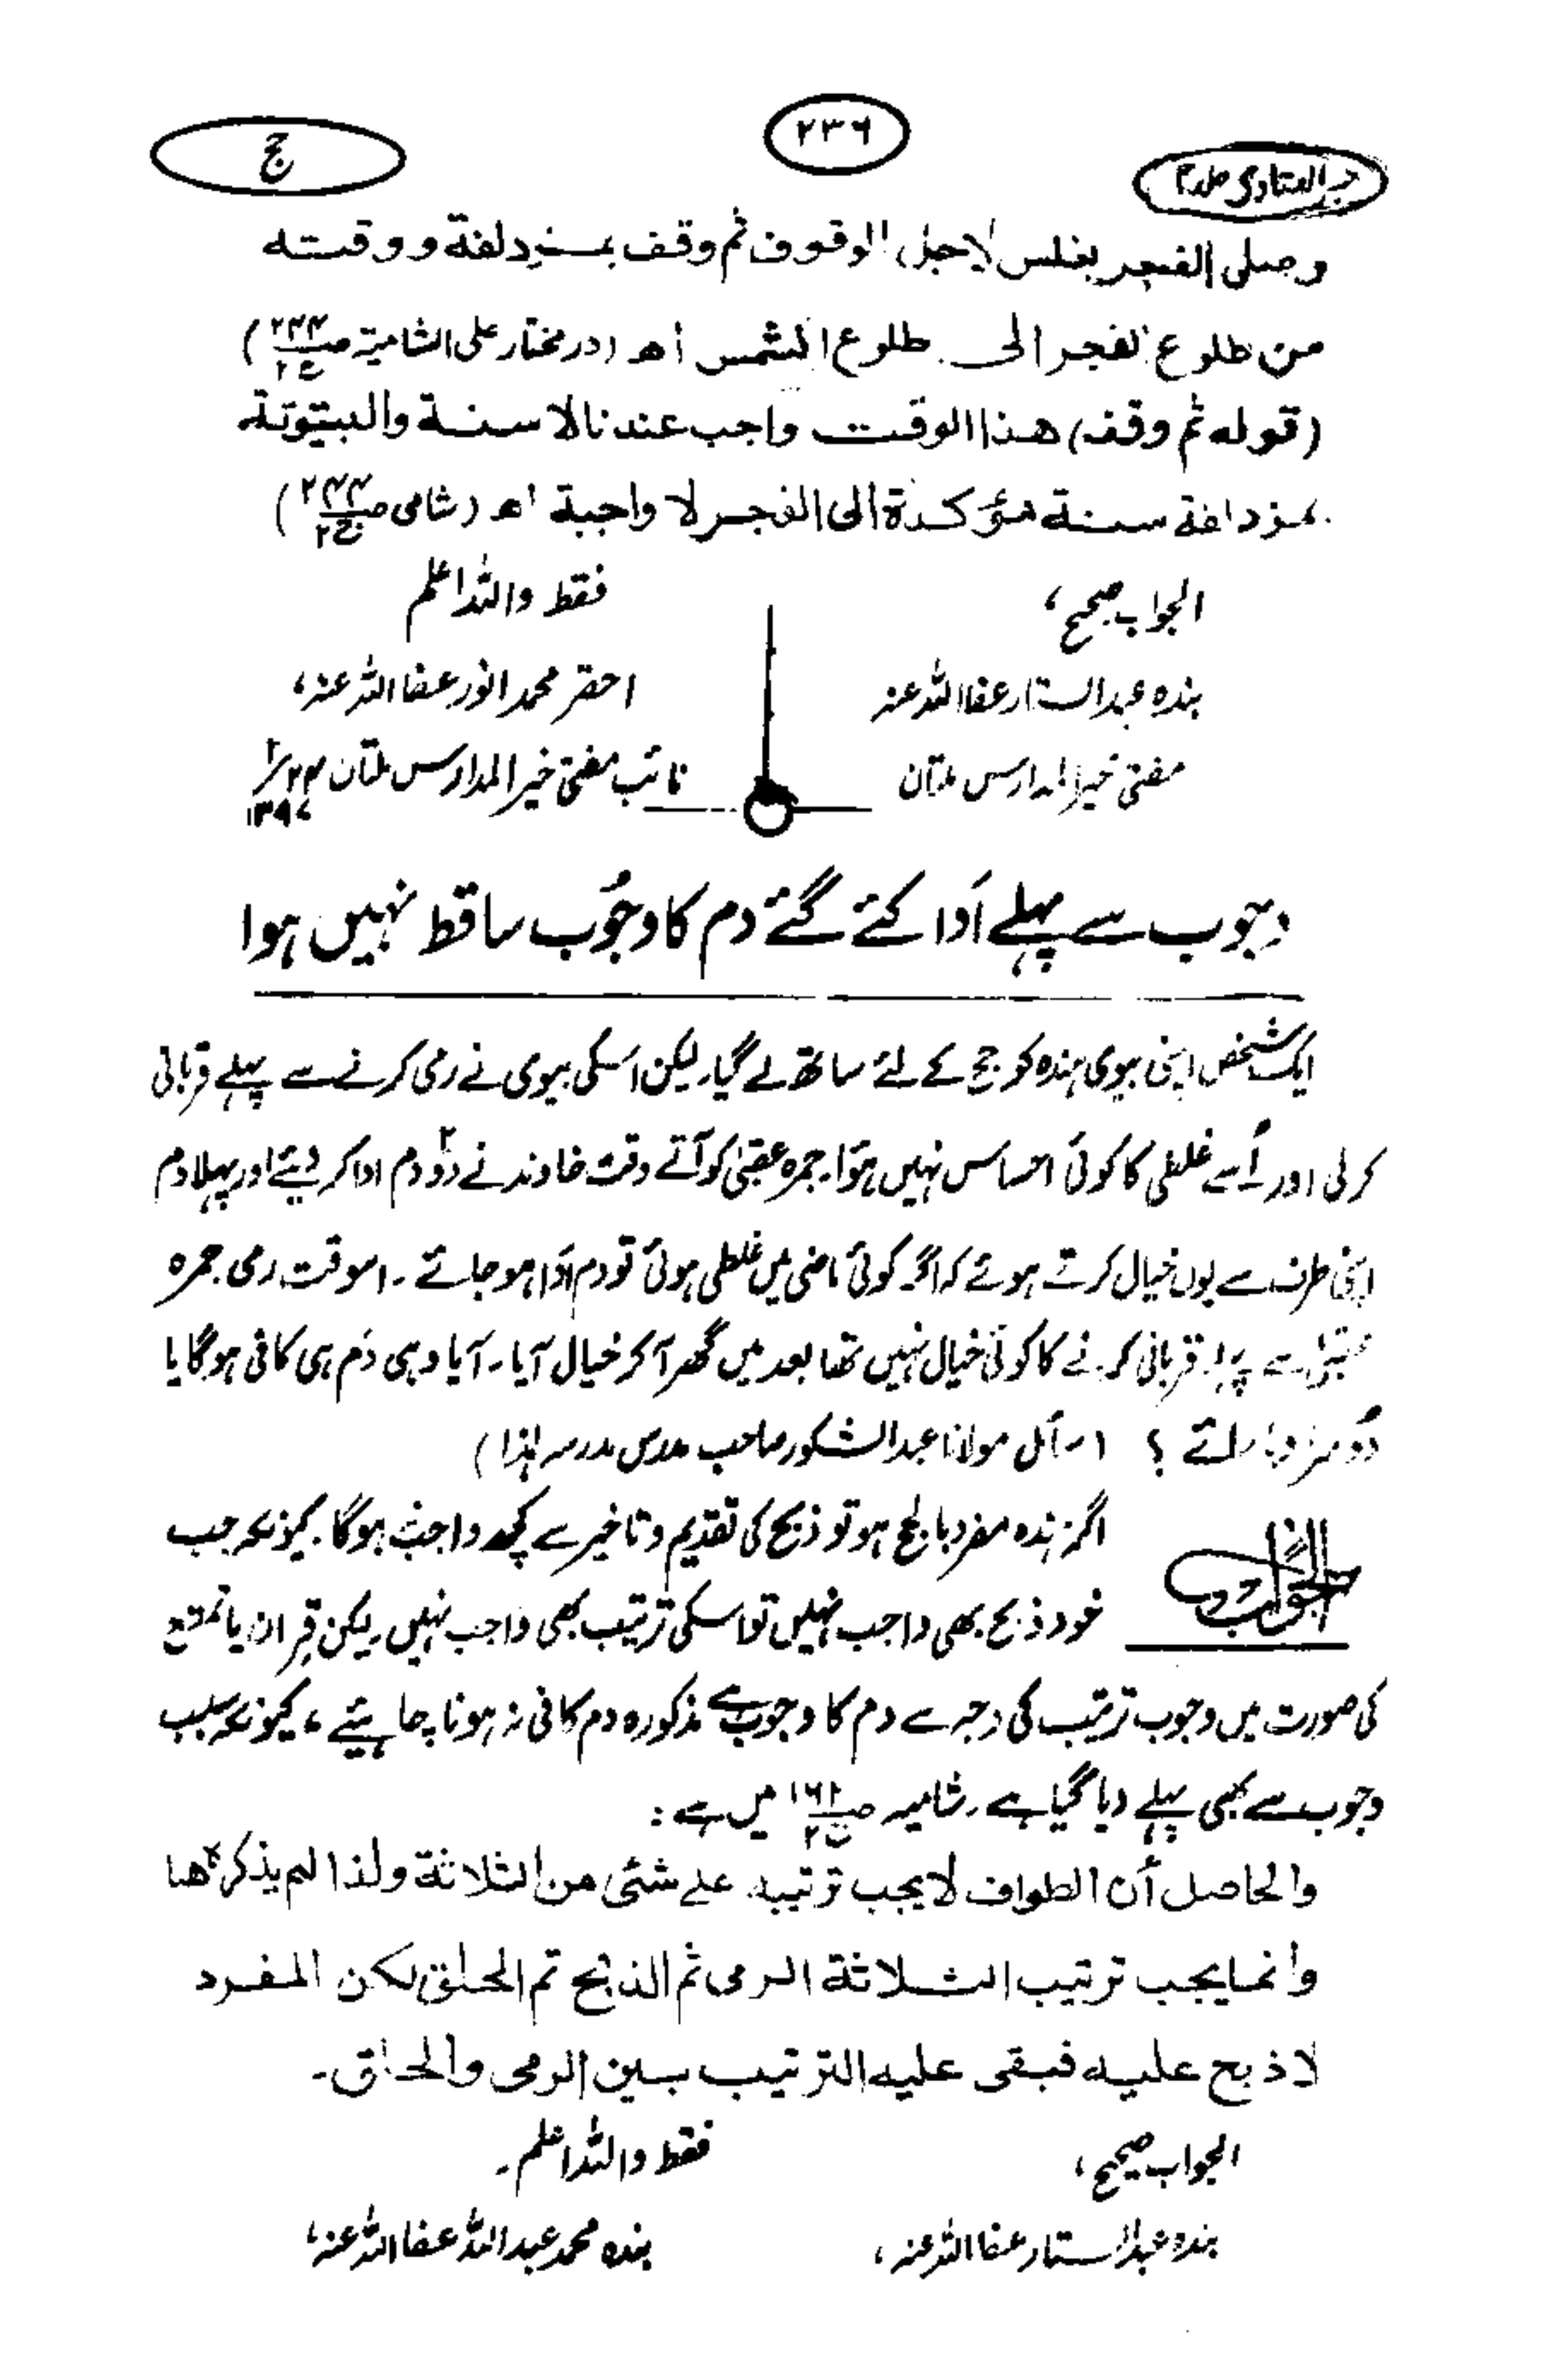 خیر الفتاوی جلد ۴
۲۳۶
حج
وصلی الفجر بغلس لاجل الوقوف ثم وقف بمزدلفة ووقته
من طلوع الفجر الی طلوع الشمس اھ (درمختار علی الشامیة ص۲۴۴ ج۲)
(قوله ثم وقف) هذا الوقت واجب عندنا لا سنة والبیتوتة
بمزدلفة سنة مؤکدة الی الفجر لا واجبة اھ (شامی ص۲۴۴ ج۲)
الجواب صحیح، فقط واللہ اعلم
بندہ عبدالستار عفا اللہ عنہ احقر محمد انور عفا اللہ عنہ،
مفتی خیر المدارس ملتان نائب مفتی خیر المدارس ملتان
وجوب سے پہلے اَدا کئے گئے دم کا وجُوب ساقط نہیں ہوا
ایک شخص اپنی بیوی ہندہ کو حج کے لئے ساتھ لے گیا۔ لیکن اسکی بیوی نے رمی کرنے سے پہلے قربانی
کرلی اور اُسے غلطی کا کوئی احساس نہیں ہؤا۔ جمرہ عقبیٰ کو آتے وقت خاوند نے دو۲ دم ادا کر دیئے اور پہلا دم
اپنی طرف سے یوں خیال کرتے ہوئے کہ اگر کوئی ماضی میں غلطی ہوئی تو دم اَدا ہو جائے۔ اسوقت رمی جمرہ
عقبیٰ سے پہلے قربانی کرنے کا کوئی خیال نہیں تھا بعد میں گھر آکر خیال آیا۔ آیا وہی دَم ہی کافی ہوگا یا
دُوسرا دیا جائے ؟ (سائل مولانا عبدالشکور صاحب مدرس مدرسہ ہٰذا)
الجواب
اگر ہندہ مفرد بالحج ہو تو ذبح کی تقدیم وتاخیر سے کچھ واجب نہ ہوگا۔ کیونکہ جب
خود ذبح بھی واجب نہیں تو اسکی ترتیب بھی واجب نہیں۔ لیکن قِران یا تمتع
کی صورت میں وجوب ترتیب کی وجہ سے دم کا وجوب ہے مذکورہ دم کافی نہ ہونا چاہیئے، کیونکہ سبب
وجوب سے بھی پہلے دیا گیا ہے۔ شامیہ ص ج۲ میں ہے :
والحاصل أن الطواف لا یجب ترتیبه علی شئی من الثلاثة ولذا لم یذکره ھنا
وانما یجب ترتیب الثلاثة الرمی ثم الذبح ثم الحلق لکن المفرد
لا ذبح علیه فبقی علیه الترتیب بین الرمی والحلق۔
الجواب صحیح، فقط واللہ اعلم۔
بندہ عبدالستار عفا اللہ عنہ، بندہ محمد عبداللہ عفا اللہ عنہ،